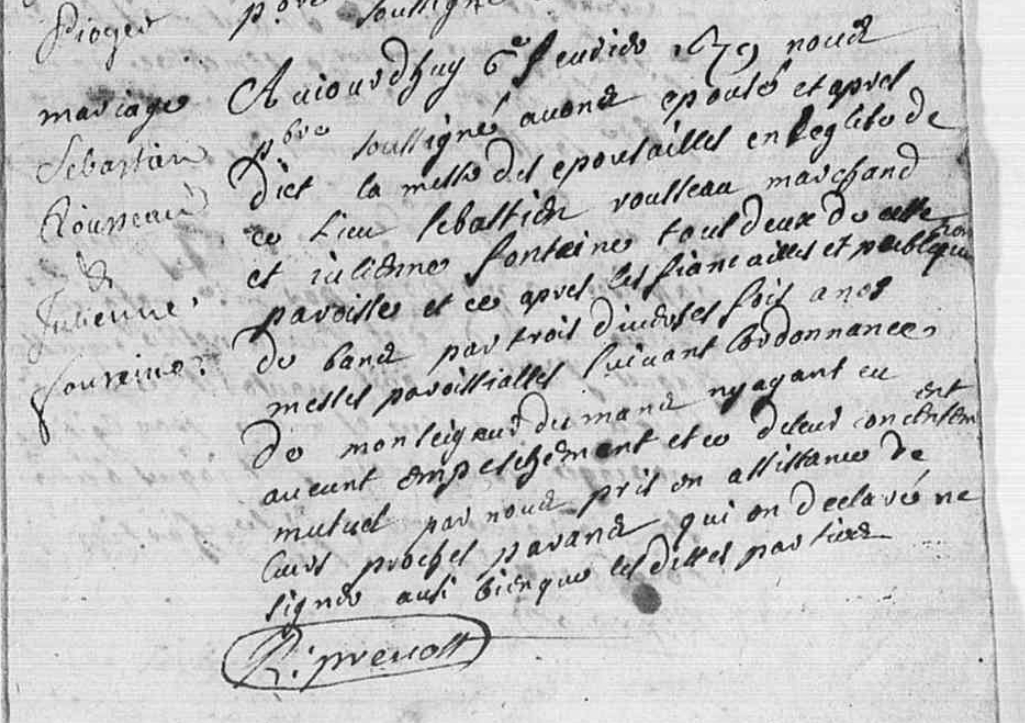 pioger
pbre soussigné
mariage
Sebastian
Rousseau
&
Julienne
fontaine
Auiourdhuy 6e feurier 1679 nous
pbre soussigné auons epousé et apres
dict la messe des epousailles en leglise de
ce lieu sebastien rousseau marchand
et iulienne fontaine tous deux de cette
paroisse et ce apres les fiancailles et publiqua
tion
de bans par trois diuerses fois a nos
messes paroissialles suiuant lordonnance
de monseigeur du mans nyayant eu
aucunt empeschement et ce de leur consentem
ent
mutuel par nous pris en assistance de
leurs proches parans qui on declaré ne
signer ausi bien que les dittes parties
R: preuost